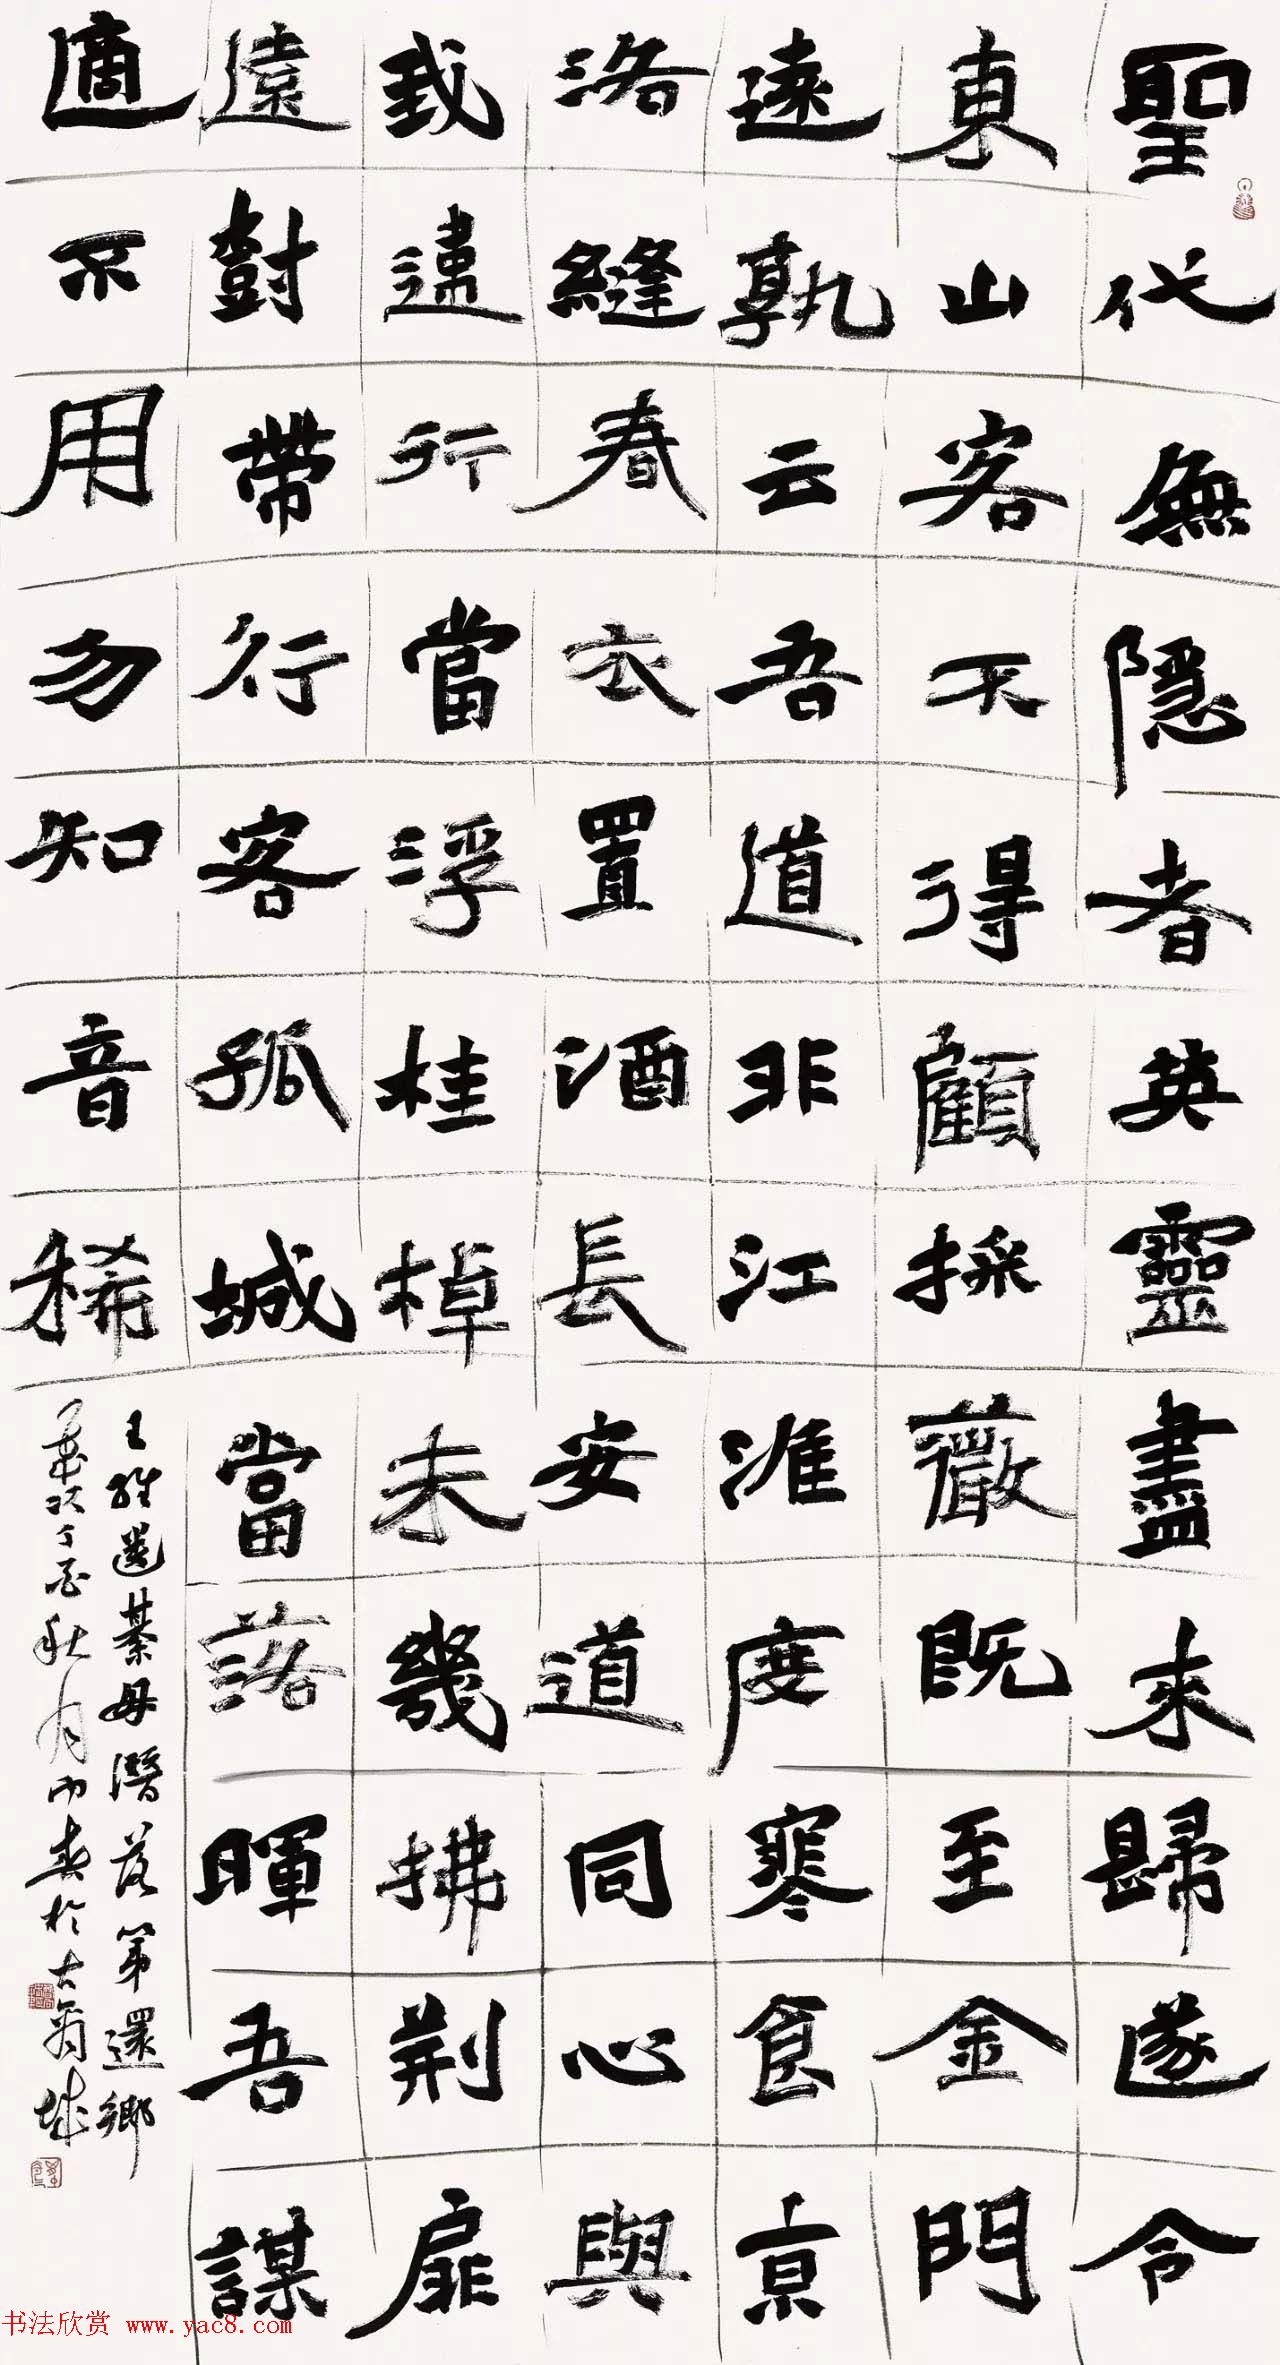 聖代無隱者英靈盡來歸遂令
東山客不得顧採薇既至金門
遠孰云吾道非江淮度寒食京
洛縫春衣置酒長安道同心與
我違行當浮桂棹未幾拂荊扉
遠對帶行客孤城當落暉吾謀
適不用勿知音稀
王維送綦母潛落第還鄉
歲次丁酉秋月於古城
书法欣赏 www.yac8.com